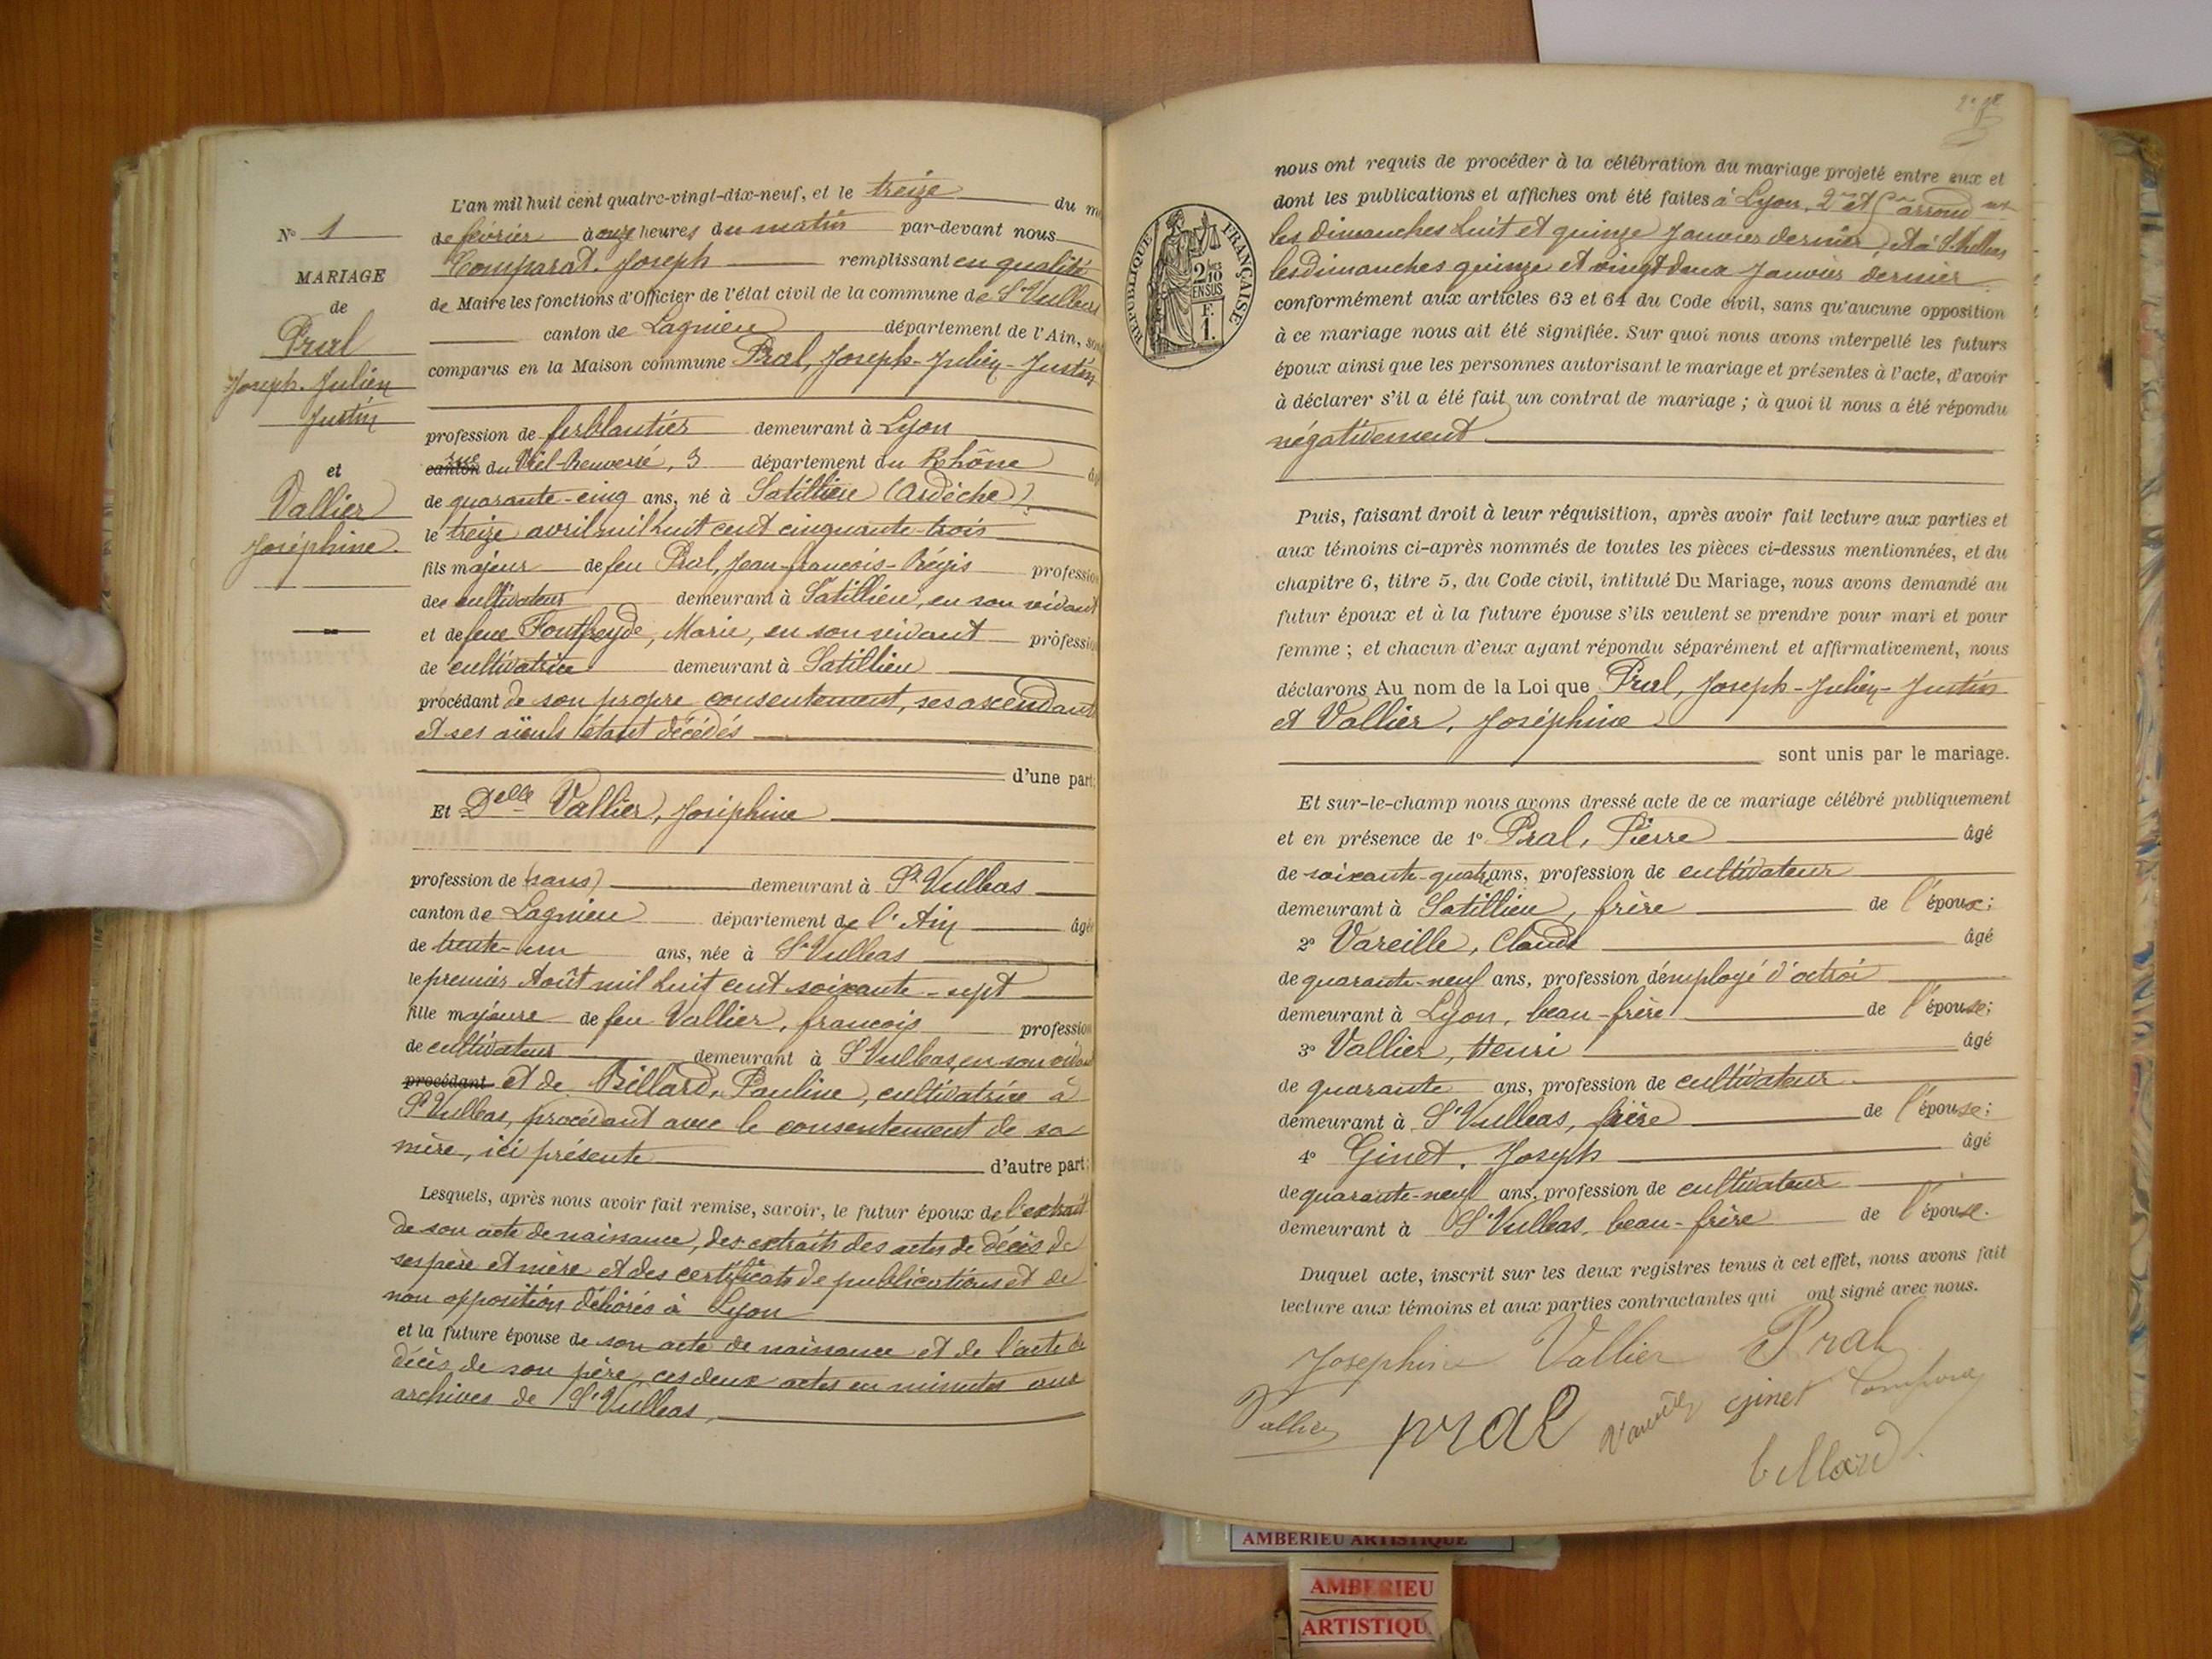 N° 1
MARIAGE
de
Pral
Joseph-Julien
Justin
et
Vallier
Joséphine
L'an mil huit cent quatre-vingt-dix-neuf, et le treize du m
de février à onze heures du matin par-devant nous
Comparat, Joseph remplissant en qualité
de Maire les fonctions d'Officier de l'état civil de la commune de St Vulbas
canton de Lagnieu département de l'Ain, sont
comparus en la Maison commune Pral, Joseph-Julien-Justin
profession de ferblantier demeurant à Lyon
canton rue du Viel-Renversé, 3 département du Rhône âgé
de quarante-cinq ans, né à Satillieu (Ardèche)
le treize avril mil huit cent cinquante-trois
fils majeur de feu Pral, Jean-françois-Régis profession
de cultivateur demeurant à Satillieu, en son vivant
et de feue Fontfreyde, Marie, en son vivant profession
de cultivatrice demeurant à Satillieu
procédant de son propre consentement, ses ascendants
et ses aïeuls étant décédés
d'une part;
Et Delle Vallier, Joséphine
profession de (sans) demeurant à St Vulbas
canton de Lagnieu département de l'Ain âgée
de trente-un ans, née à St Vulbas
le premier Août mil huit cent soixante-sept
fille majeure de feu Vallier, françois profession
de cultivateur demeurant à St Vulbas, en son vivant
procédant et de Billard, Pauline, cultivatrice à
St Vulbas, procédant avec le consentement de sa
mère, ici présente d'autre part;
Lesquels, après nous avoir fait remise, savoir, le futur époux de l'extrait
de son acte de naissance, des extraits des actes de décès de
ses père et mère et des certificats de publications et de
non opposition délivrés à Lyon
et la future épouse de son acte de naissance et de l'acte de
décès de son père, ces deux actes en minutes aux
archives de St Vulbas,
nous ont requis de procéder à la célébration du mariage projeté entre eux et
dont les publications et affiches ont été faites à Lyon, 2me et arrond
les dimanches huit et quinze Janvier dernier, et à St Vulbas
les dimanches quinze et vingt deux Janvier dernier
conformément aux articles 63 et 64 du Code civil, sans qu'aucune opposition
à ce mariage nous ait été signifiée. Sur quoi nous avons interpellé les futurs
époux ainsi que les personnes autorisant le mariage et présentes à l'acte, d'avoir
à déclarer s'il a été fait un contrat de mariage ; à quoi il nous a été répondu
négativement
RÉPUBLIQUE FRANÇAISE
2/10 EN SUS
F. 1.
Puis, faisant droit à leur réquisition, après avoir fait lecture aux parties et
aux témoins ci-après nommés de toutes les pièces ci-dessus mentionnées, et du
chapitre 6, titre 5, du Code civil, intitulé Du Mariage, nous avons demandé au
futur époux et à la future épouse s'ils veulent se prendre pour mari et pour
femme ; et chacun d'eux ayant répondu séparément et affirmativement, nous
déclarons Au nom de la Loi que Pral, Joseph-Julien-Justin
et Vallier, Joséphine
sont unis par le mariage.
Et sur-le-champ nous avons dressé acte de ce mariage célébré publiquement
et en présence de 1° Pral, Pierre âgé
de soixante-quatre ans, profession de cultivateur
demeurant à Satillieu, frère de l'époux;
2° Vareille, Claude âgé
de quarante-neuf ans, profession d'employé d'octroi
demeurant à Lyon, beau-frère de l'épouse;
3° Vallier, Henri âgé
de quarante ans, profession de cultivateur
demeurant à St Vulbas, frère de l'épouse;
4° Ginet, Joseph âgé
de quarante-neuf ans, profession de cultivateur
demeurant à St Vulbas, beau-frère de l'épouse.
Duquel acte, inscrit sur les deux registres tenus à cet effet, nous avons fait
lecture aux témoins et aux parties contractantes qui ont signé avec nous.
Josephine Vallier Pral
Vallier pral Vareille Ginet Comparat
billard
AMBERIEU ARTISTIQUE
AMBERIEU
ARTISTIQU